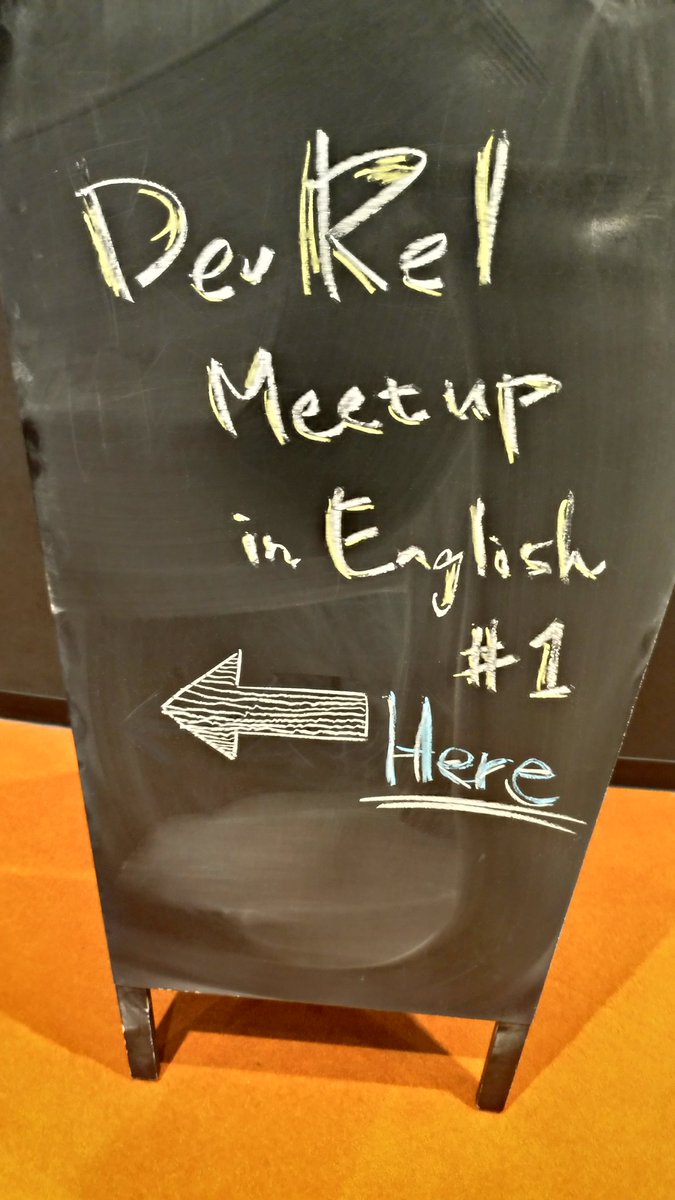 DevRel
Meetup
in English
#1
Here